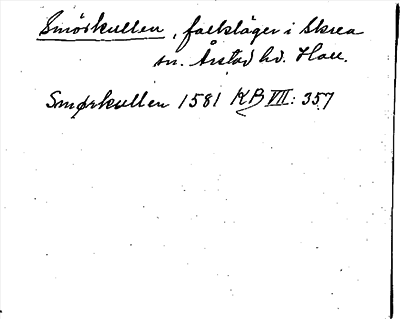 Smörkullen, falkläger i Skrea
sn. Årstad hd. Hall.
Smørkullen 1581 KB VII: 357